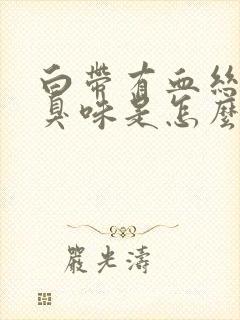 白帶有血絲
臭味是怎麼
嚴光濤